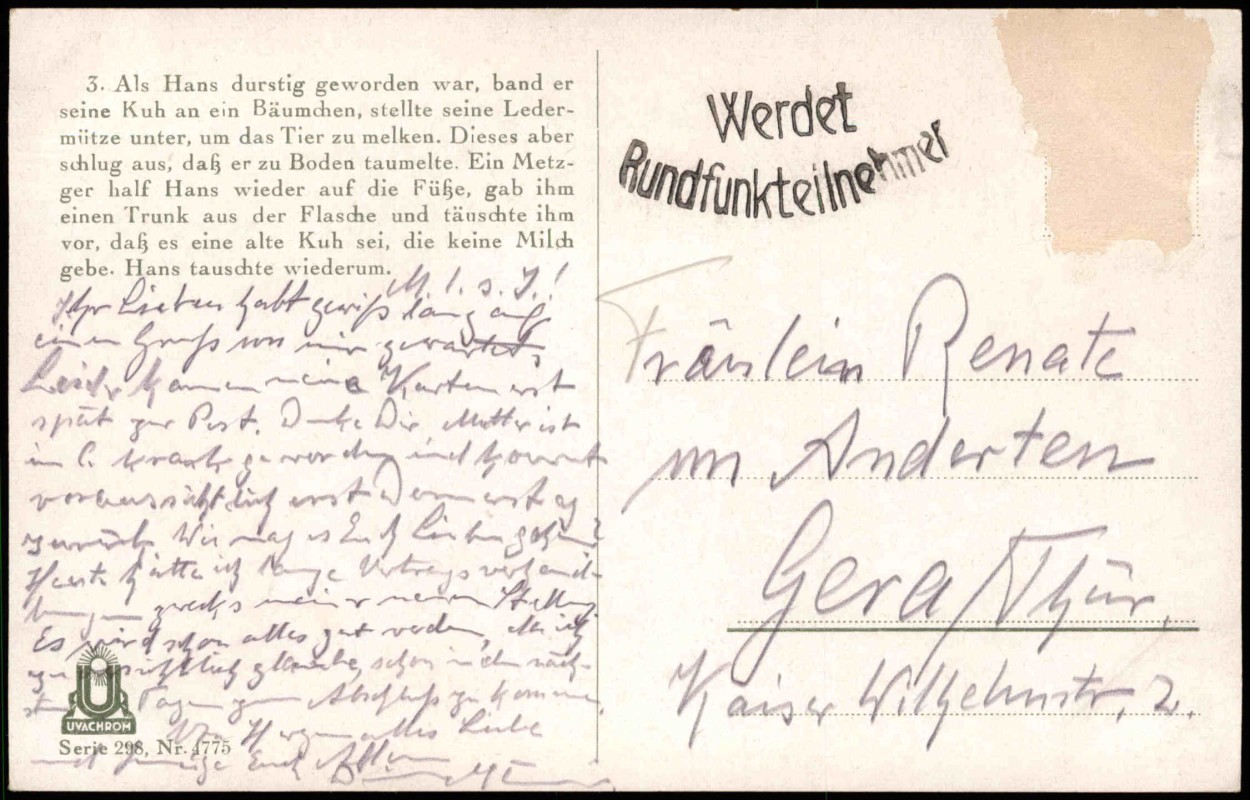 3. Als Hans durstig geworden war, band er
seine Kuh an ein Bäumchen, stellte seine Leder-
mütze unter, um das Tier zu melken. Dieses aber
schlug aus, daß er zu Boden taumelte. Ein Metz-
ger half Hans wieder auf die Füße, gab ihm
einen Trunk aus der Flasche und täuschte ihm
vor, daß es eine alte Kuh sei, die keine Milch
gebe. Hans tauschte wiederum.
Ihr Lieben habt gewiß lang auf
einen Gruß von mir gewartet.
Leider kamen meine Karten erst
spät zur Post. Mutter ist
krank geworden und kommt
voraussichtlich erst Donnerstag
zurück. Wie mag es Euch Lieben gehen?
Heute hatte ich lange Vertragsverhand-
lungen zwecks meiner neuen Stellung.
Es wird schon alles gut werden,
zuversichtlich glaube, schon in den näch-
sten Tagen zum Abschluß zu kommen.
Von Herzen alles Liebe
und Euch
UVACHROM
Serie 298, Nr. 4775
Werdet
Rundfunkteilnehmer
Fräulein Renate
von Anderten
Gera/Thür.
Kaiser Wilhelmstr. 2.